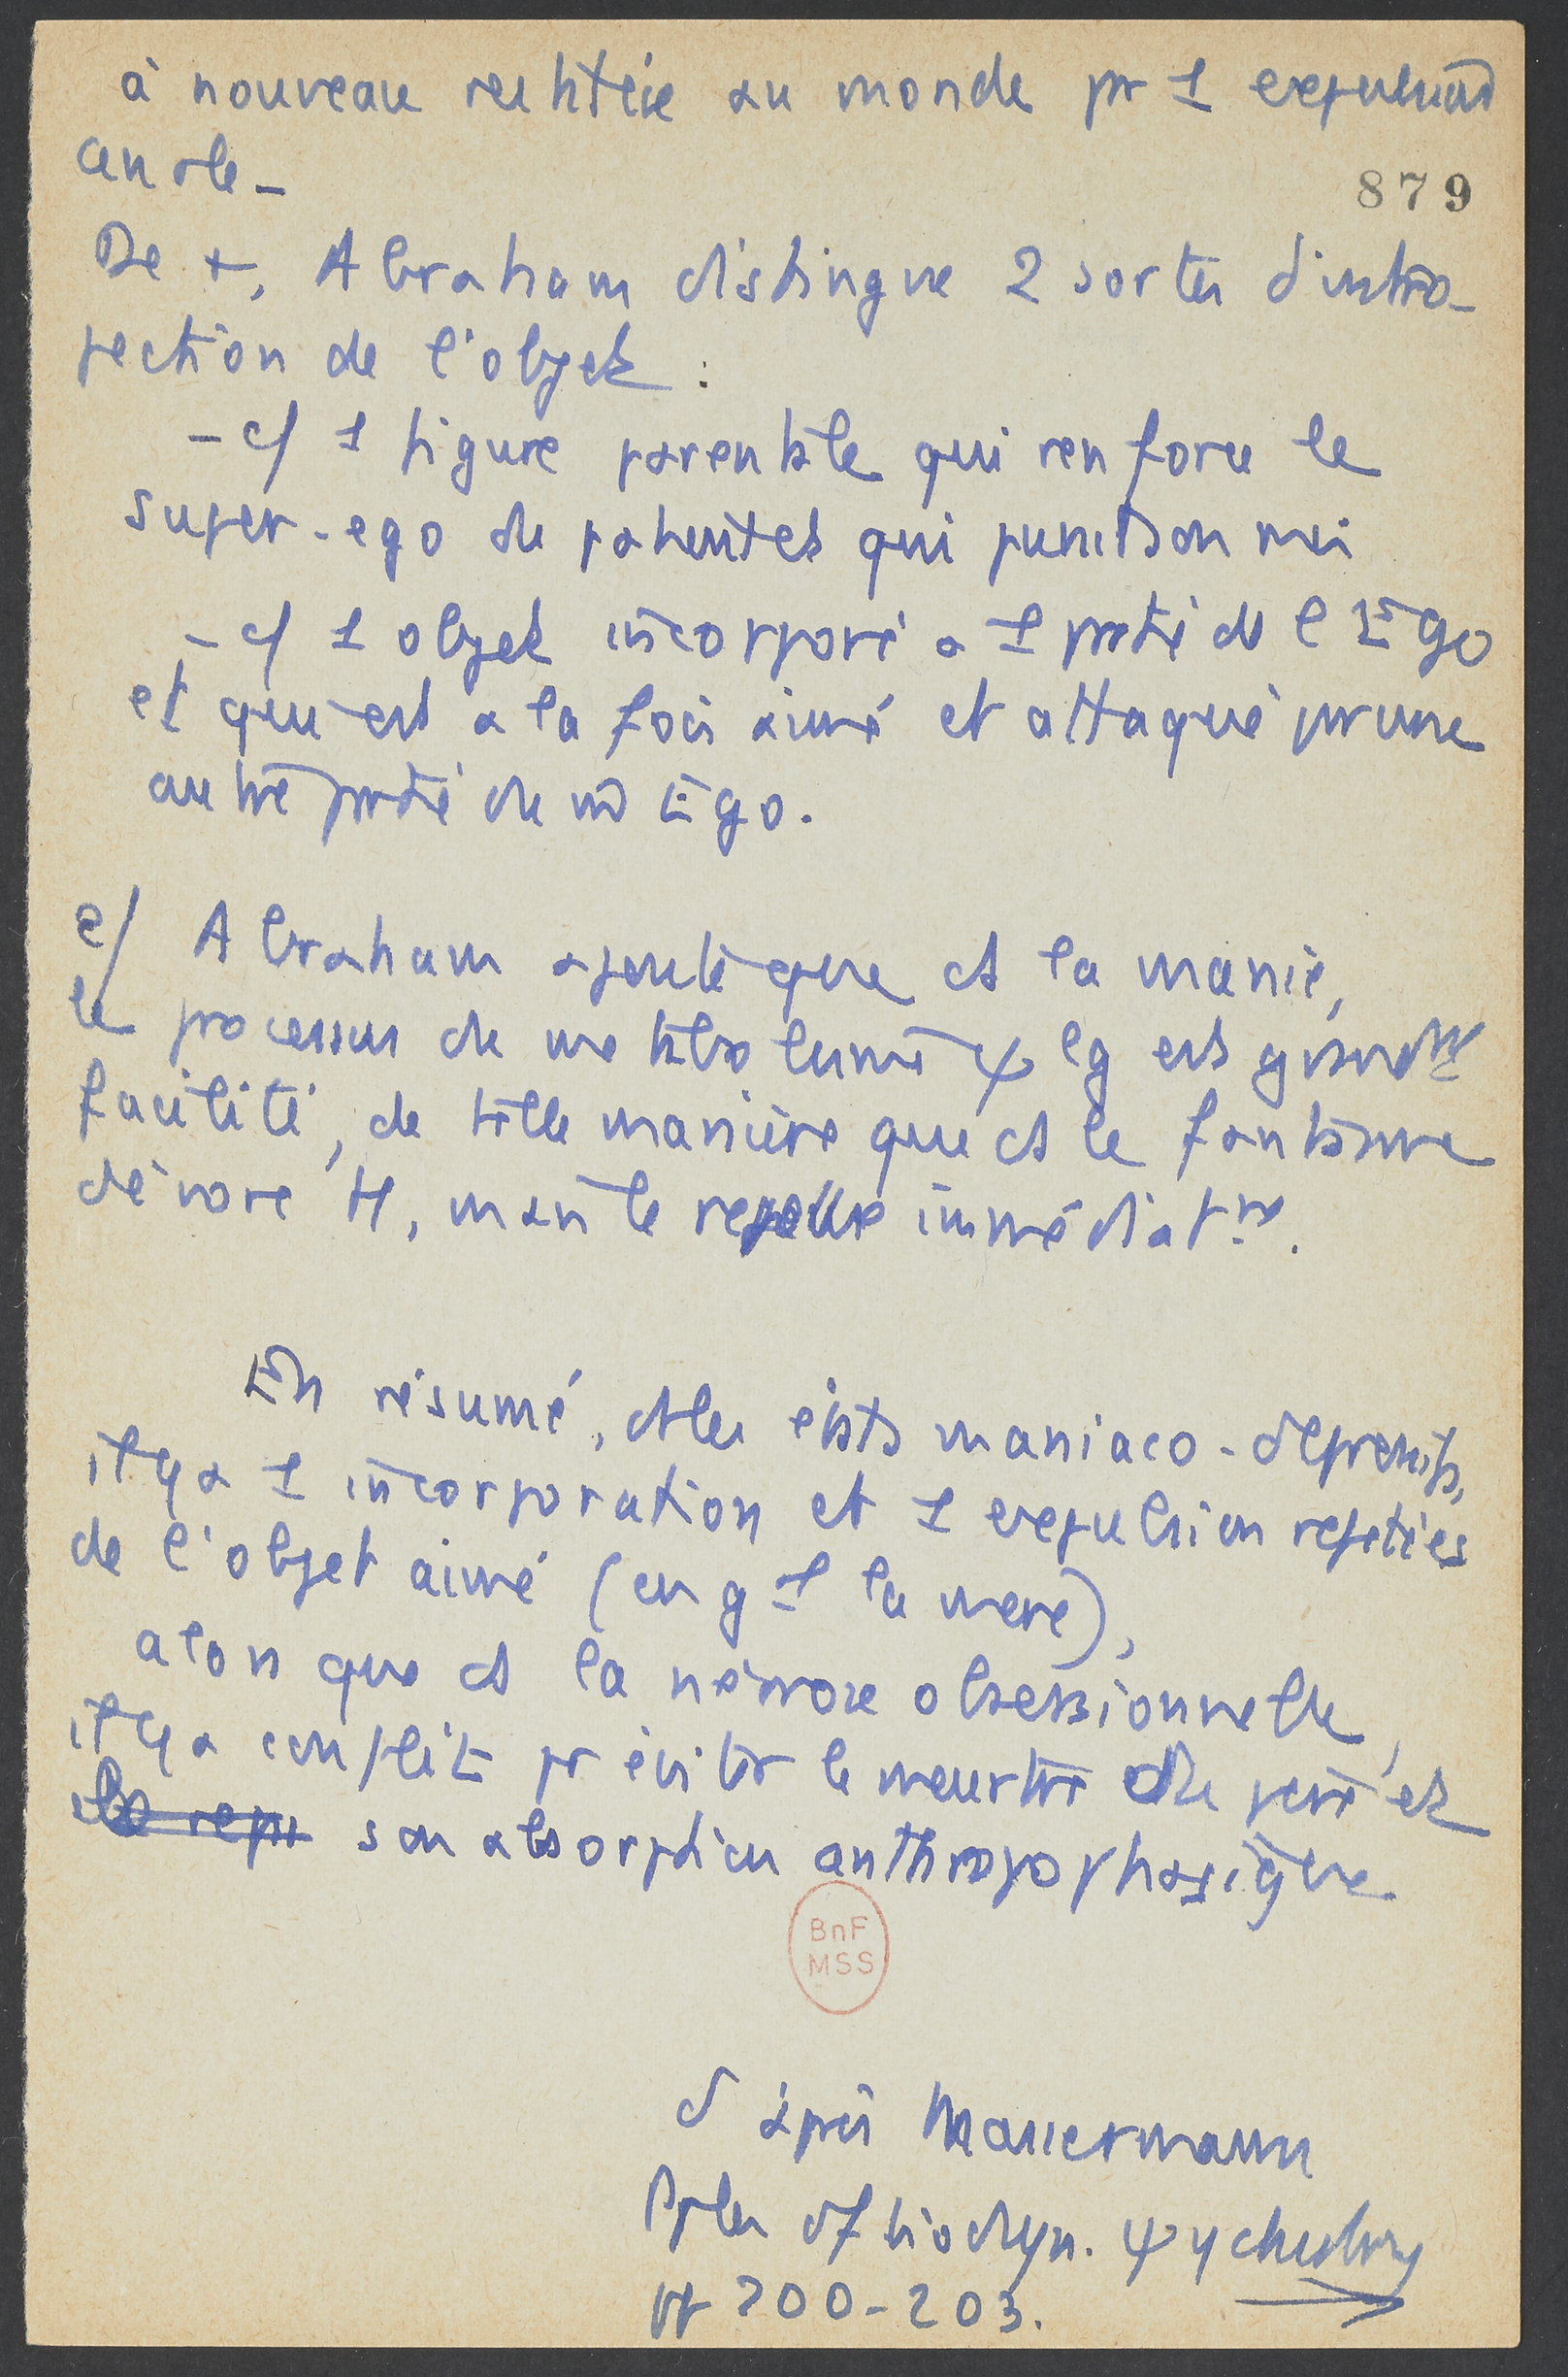 à nouveau restituée au monde pr 1 expulsion
anale_
879
De +, Abraham distingue 2 sortes d'intro-
jection de l'objet :
- c/ 1 figure parentale qui renforce le
super-ego du patient et qui punit son moi
- c/ 1 objet incorporé à 1 partie de l'Ego
et qui est à la fois aimé et attaqué par une
autre partie de cet Ego.
e/ Abraham ajoute que ds la manie,
le processus de métabolisme ψlg est
facilité, de telle manière que ds le fantasme
dévore tt, mais le rejette immédiatmt.
En résumé, ds les états maniaco-dépressifs,
il y a 1 incorporation et 1 expulsion répétées
de l'objet aimé (en gl la mère),
alors que ds la névrose obsessionnelle,
il y a conflit pr éviter le meurtre du père et
son absorption anthropophagique
BnF
MSS
d'après Masserman
Pples of biodyn. ψychiatry
pp 200-203.